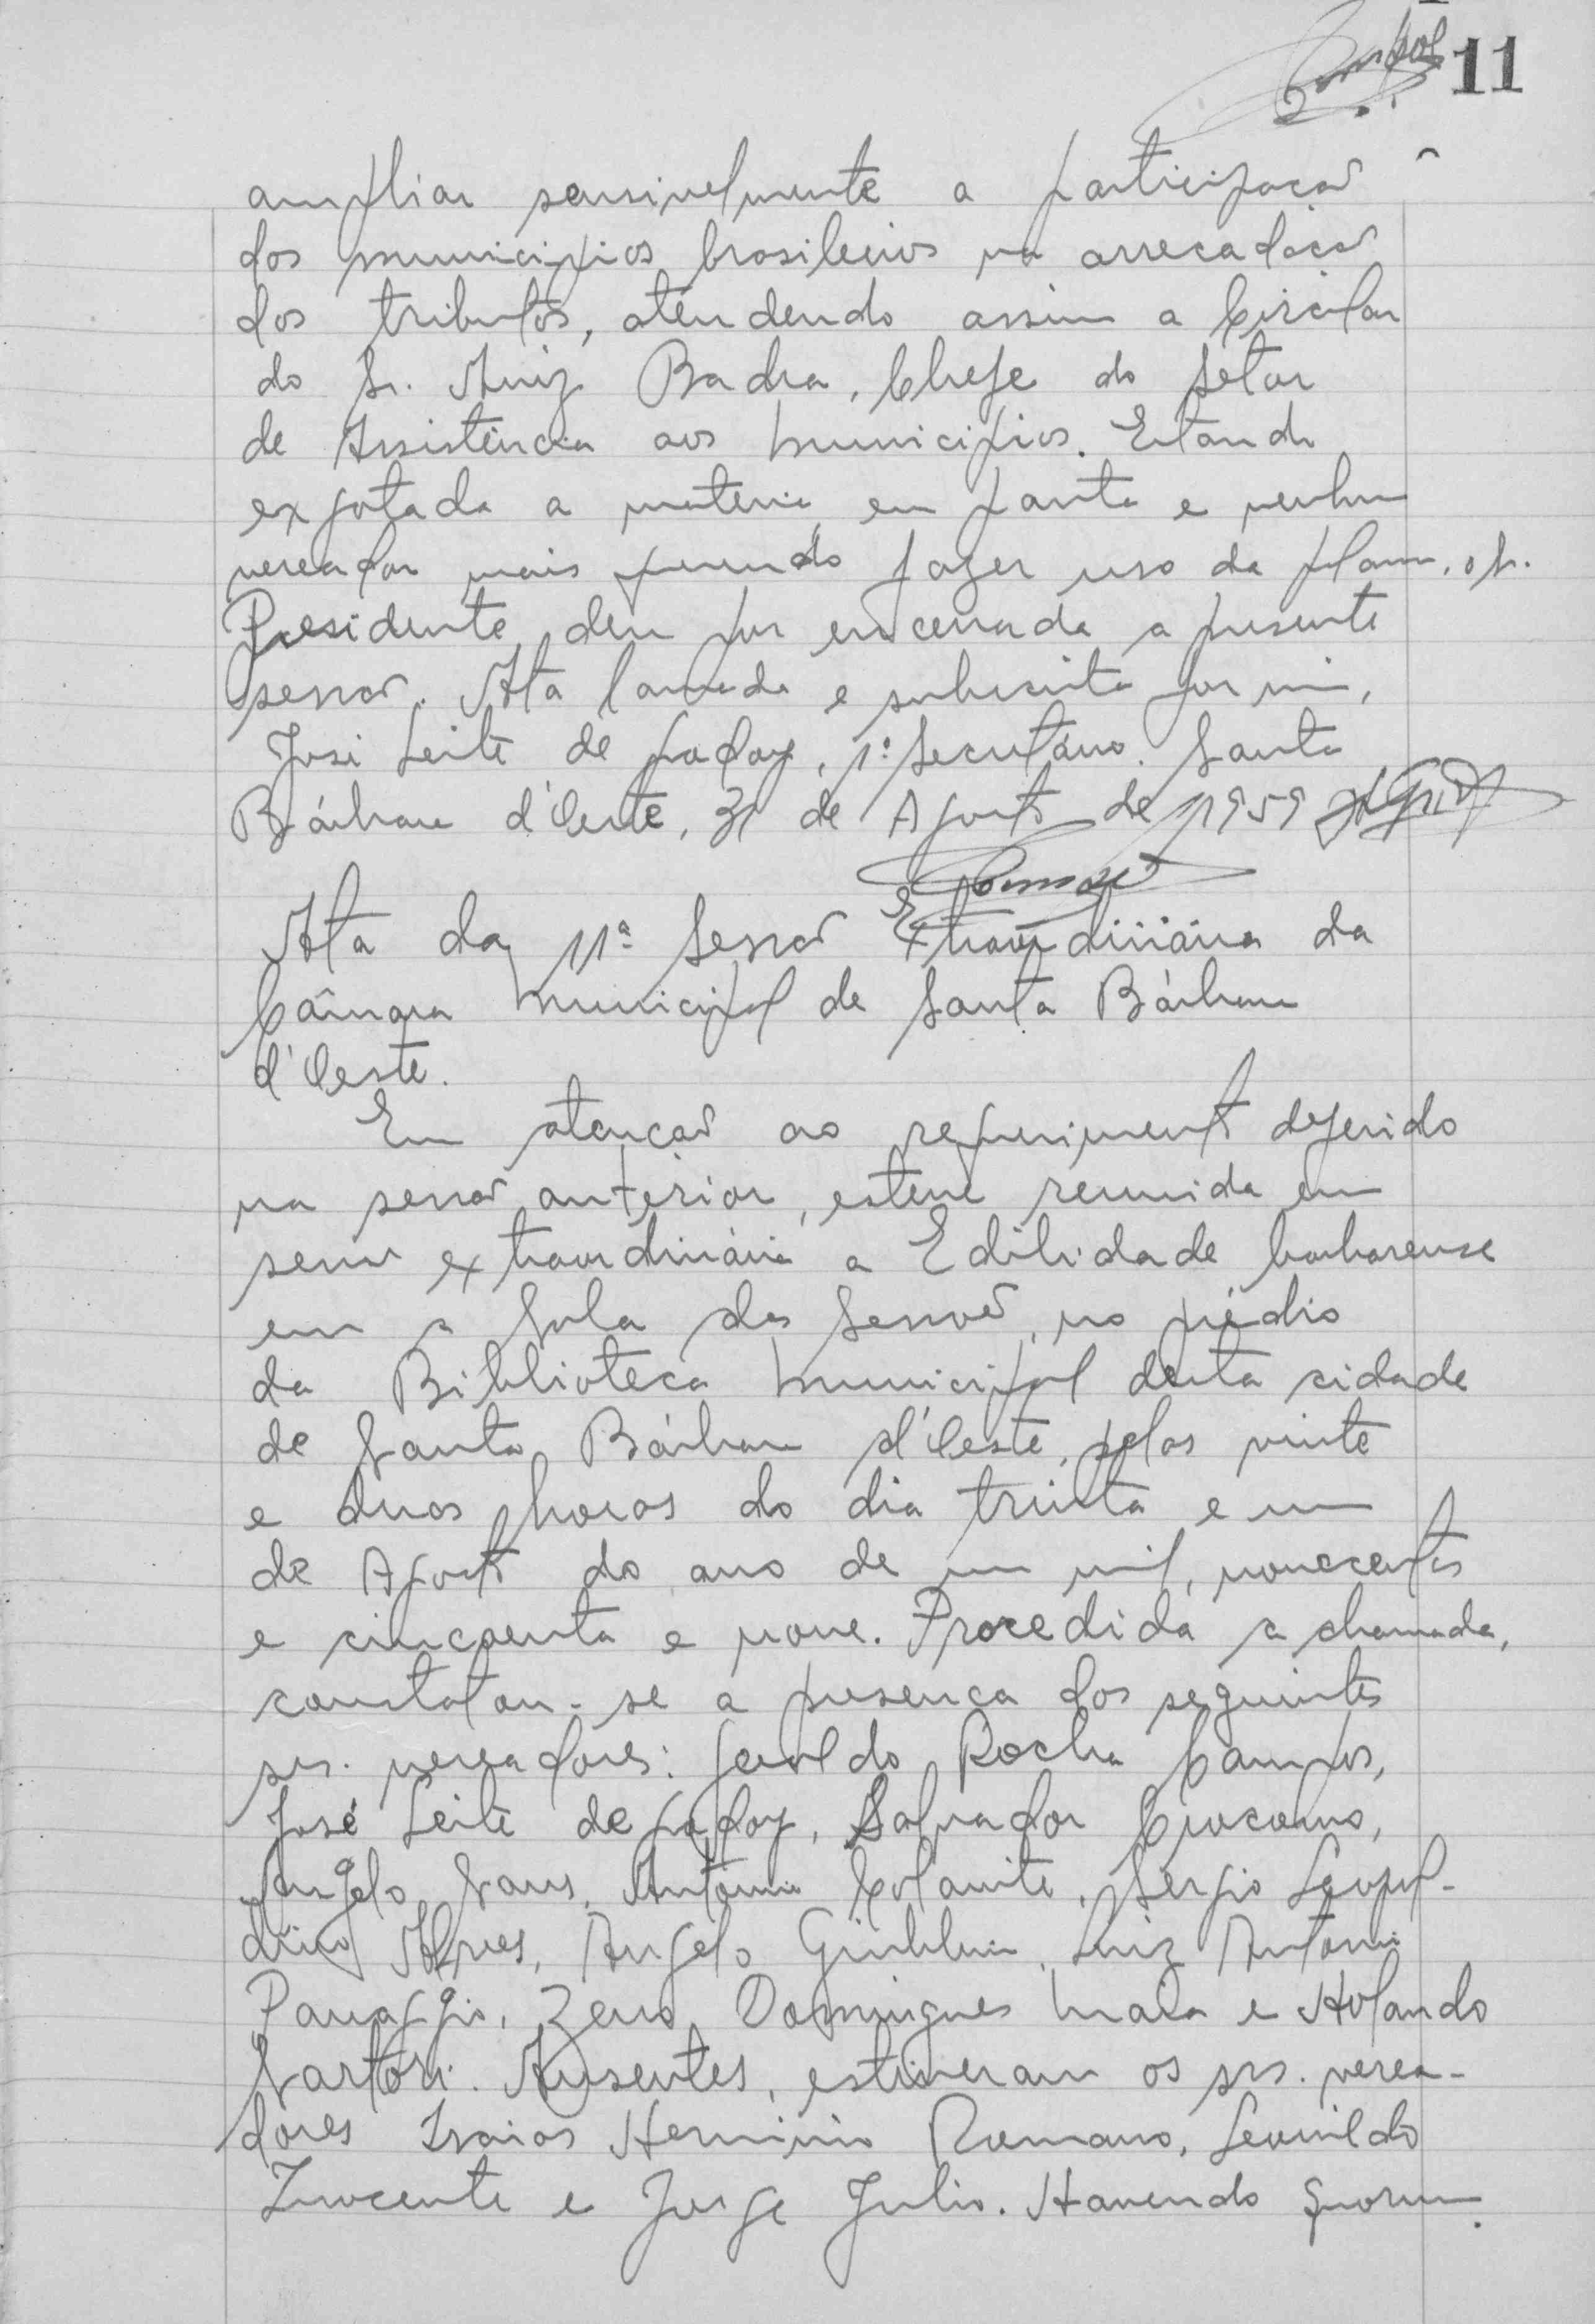 11
ampliar sensivelmente a participação
dos municipios brasileiros na arrecadação
dos tributos, atendendo assim a Circular
do Sr. Aniz Badra, Chefe do Setor
de Assistência aos Municipios. Estando
exgotada a materia em pauta e nenhum
vereador mais querendo fazer uso da palavra, o Sr.
Presidente deu por encerrada a presente
sessão. Ata lavrada e subscrita por mim,
José Leite de Godoy, 1º Secretário. Santa
Bárbara d'Oeste, 31 de Agosto de 1959
Ata da 11ª Sessão Extraordinária da
Câmara Municipal de Santa Bárbara
d'Oeste.
Em atenção ao requerimento deferido
na sessão anterior, esteve reunida em
sessão extraordinária a Edilidade barbarense
em a Sala das Sessões, no prédio
da Biblioteca Municipal desta cidade
de Santa Bárbara d'Oeste, pelas vinte
e duas horas do dia trinta e um
de Agosto do ano de um mil, novecentos
e cincoenta e nove. Procedida a chamada,
constatou-se a presença dos seguintes
srs. vereadores: Geraldo Rocha Campos,
José Leite de Godoy, Salvador
Angelo Sans, Antonio Sergio Leopol-
dino Alves, Angelo Giubbina, Luiz Antonio
Panaggio, Zeno Domingues Maia e Holando
Sartori. Ausentes, estiveram os srs. verea-
dores Isaias Herminio Romano, Leonildo
Inocente e Jorge Julio. Havendo quorum